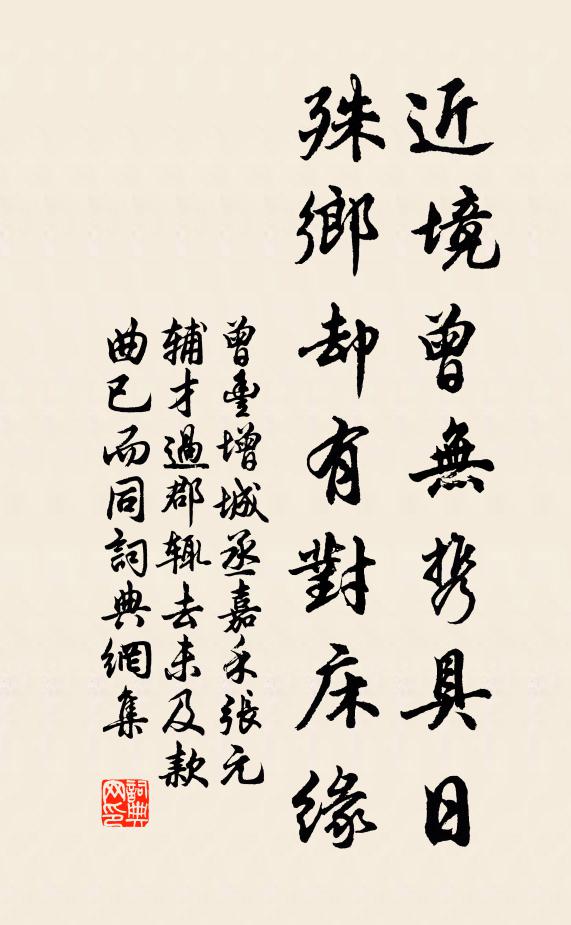 近境曾無携具日
殊鄉却有對床緣
曾豊增城丞嘉禾張元
辅才過郡辄去未及款
曲已而同詞典網集
詞典网印